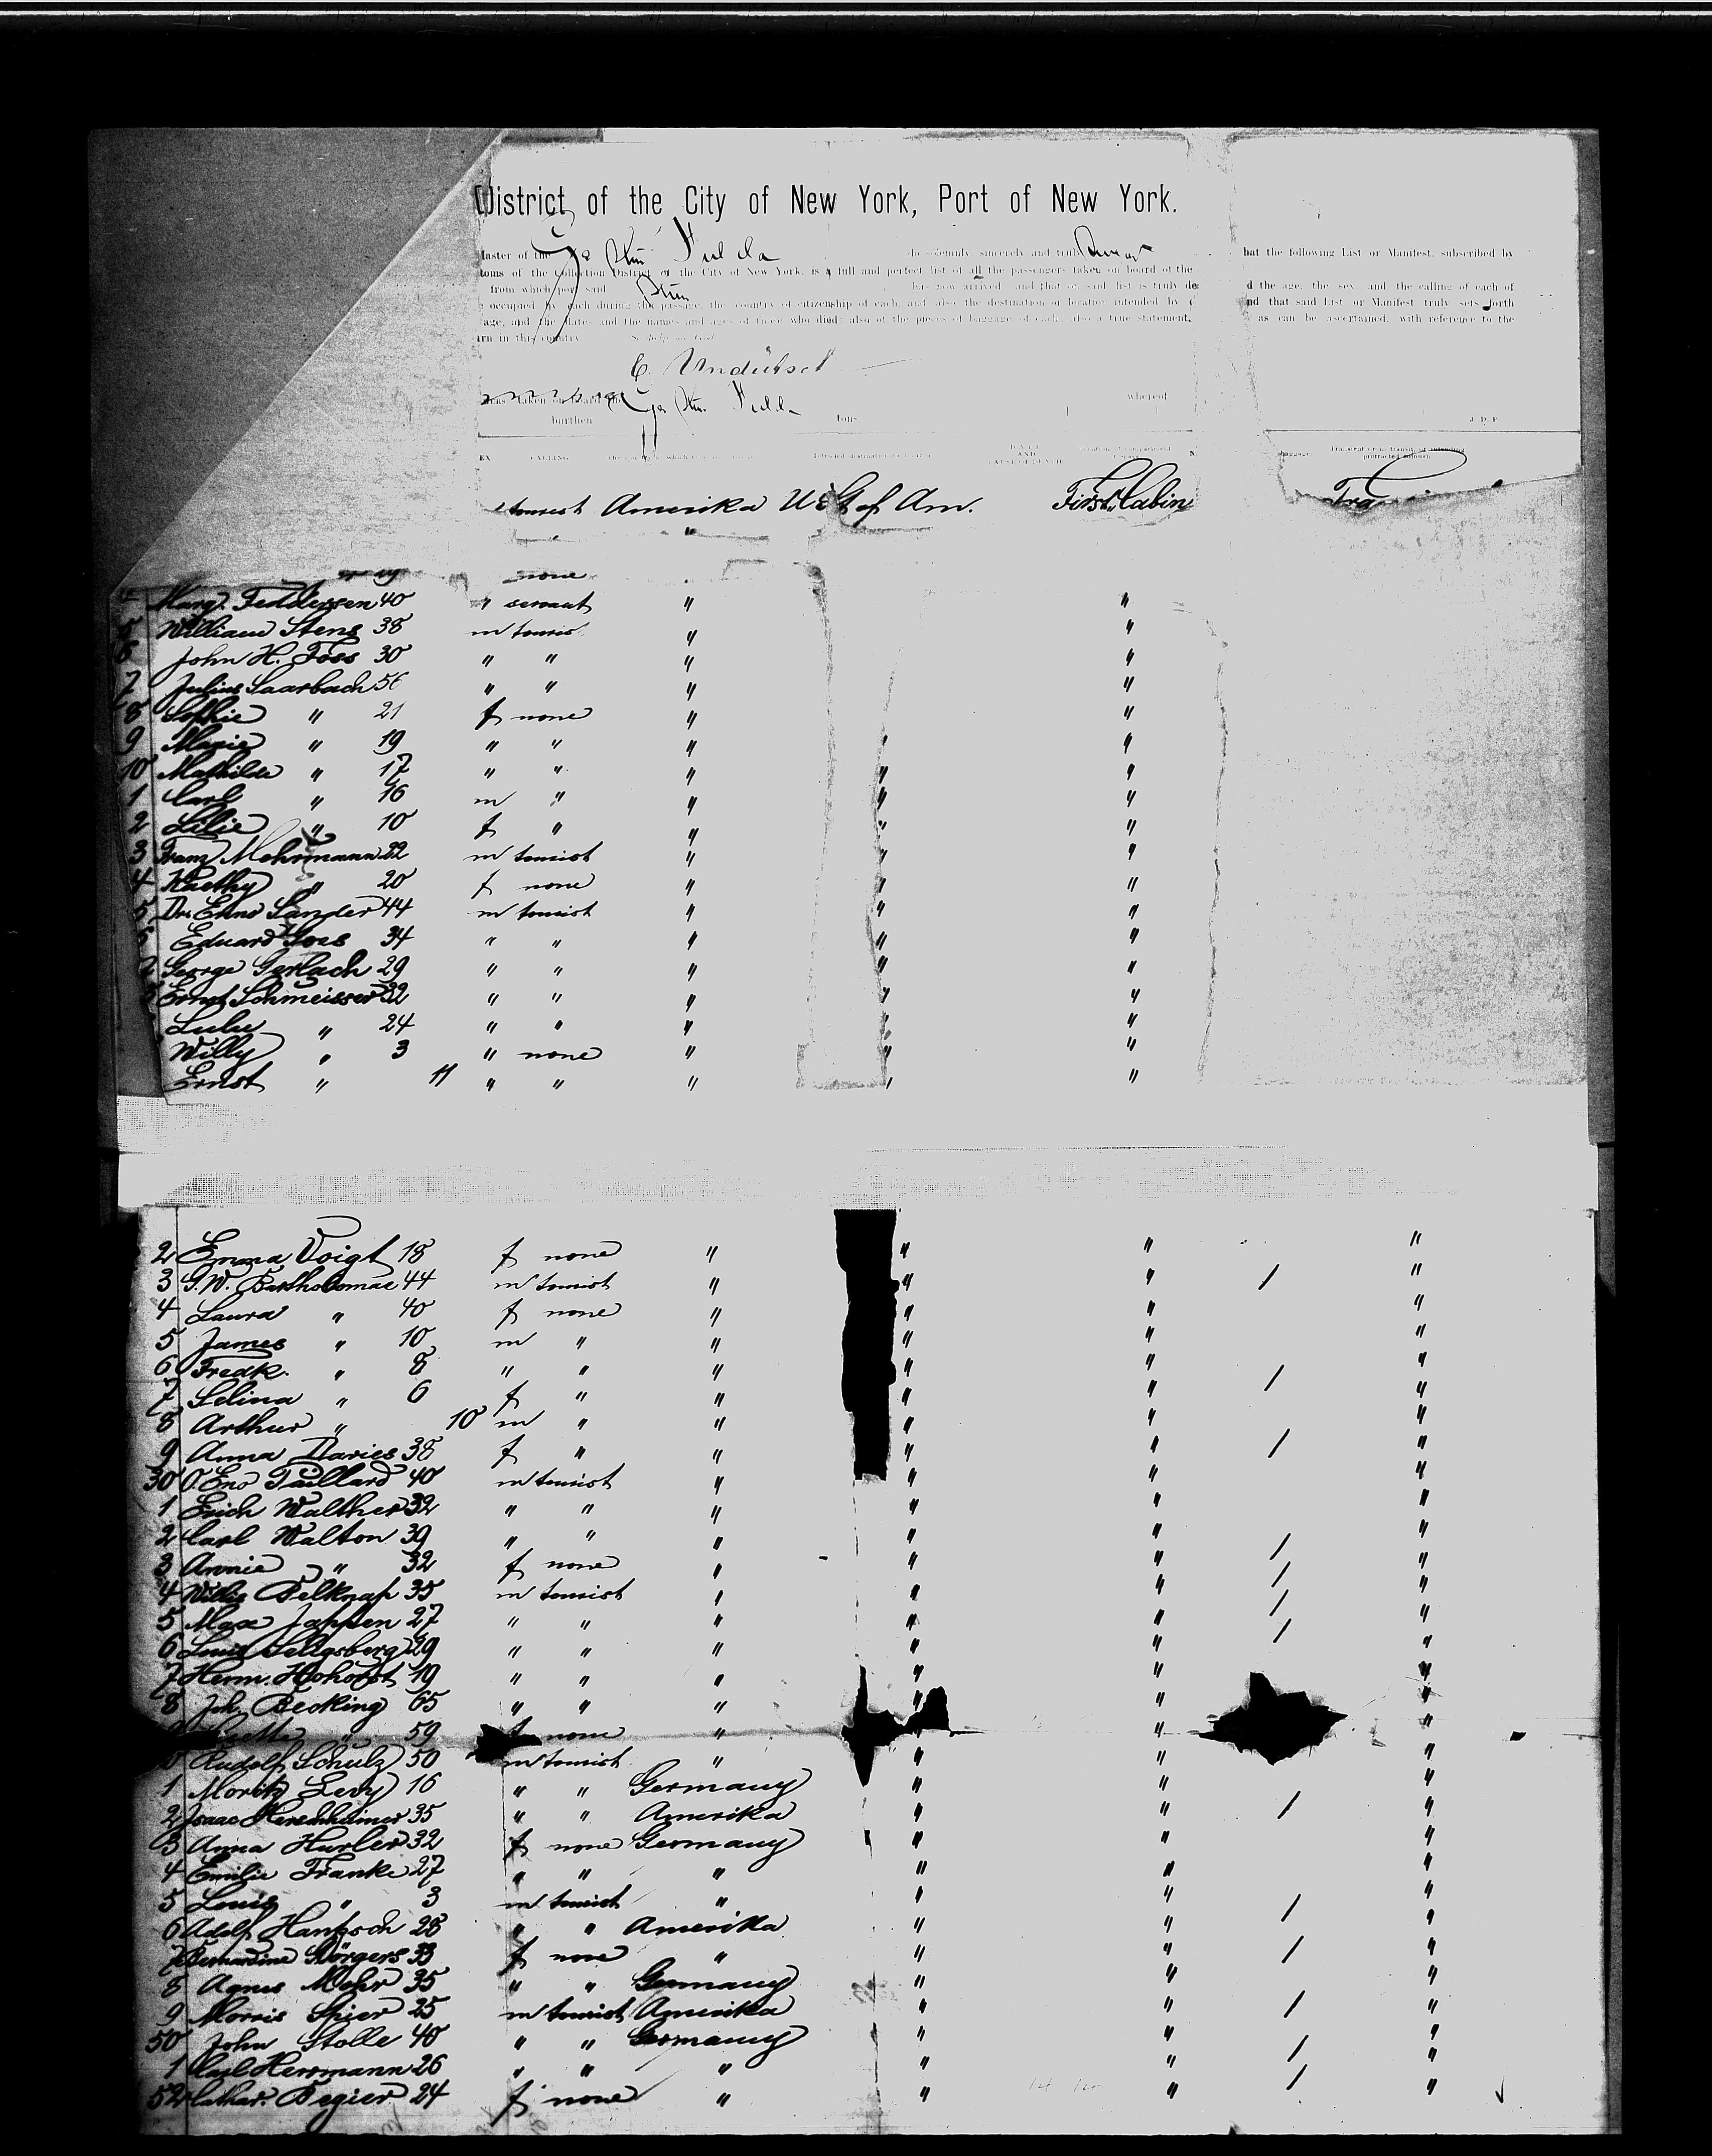 District of the City of New York, Port of New York.
Master of the Ger Str Fulda do solemnly, sincerely and truly swear that the following List or Manifest, subscribed by
toms of the Collection District of the City of New York, is a full and perfect list of all the passengers taken on board of the
from which port said Str has now arrived and that on said list is truly de d the age, the sex and the calling of each of
occupied by each during the passage, the country of citizenship of each and also the destination or location intended by nd that said List or Manifest truly sets forth
age, and the dates and the names and ages of those who died; also of the pieces of baggage of each also a true statement, as can be ascertained, with reference to the
rn in this country So help me God
taken on board the Ger Str. Fulda whereof
burthen tons
EX CALLING
tourist Amerika U St of Am. First Cabin Tra
"
none
4 Marg. Feddersen 40 " servant " "
5 William Stens 38 m touris " "
6 John H. Foss 30 " " " "
7 Julius Saarbach 56 " " " "
8 Sophie " 21 f none " "
9 Marie " 19 " " " " "
10 Mathilde " 17 " " " " "
1 Carl " 16 m " " " "
2 Lilie " 10 f " " " "
3 Franz Mehrmann 22 m tourist " " "
4 Kaethy " 20 f none " " "
5 Dr. Enno Sander 44 m tourist " " "
Eduard Goes 34 " " " " "
George Gerlach 29 " " " " "
Ernst Schmeisser 32 " " " " "
Lulu " 24 " " " " "
Willy " 3 " none " " "
Ernst " 11 " " " " "
2 Emma Voigt 18 f none " " " "
3 G.W. Bartholomae 44 m tourist " " " / "
4 Laura " 40 f none " " " "
5 James " 10 m " " " " "
6 Fredk. " 8 " " " " " / "
7 Selina " 6 f " " " " "
8 Arthur " 10 m " " " " "
9 Anna Davies 38 f " " " " / "
30 Paillard 40 m tourist " " " "
1 Erich Walther 32 " " " " " "
2 Carl Walton 39 " " " " " / "
3 Annie " 32 f none " " " / "
4 Willie Belknap 35 m tourist " " " / "
5 Max Jappen 27 " " " " " / "
6 Louis Seligsberg 29 " " " " " "
7 Herm. Hohorst 19 " " " " " "
8 Joh. Becking 65 " " " " " "
" 59 f none " " "
Rudolf Schulz 50 m tourist " " " "
1 Moritz Levy 16 " " Germany " " "
2 Isaac Herschheimer 35 " " Amerika " " / "
3 Anna Hurler 32 f none Germany " " "
4 Emilie Franke 27 " " " " " "
5 Louis " 3 m tourist " " " / "
6 Adolf Hantzsch 28 " " Amerika " " "
7 Bernardine Börgers 33 f none " " " / "
8 Agnes Mohr 35 " " Germany " " "
9 Morris Spier 25 m tourist Amerika " " / "
50 John Stolle 40 " " Germany " " / "
1 Carl Herrmann 26 " " " " " / "
52 Cathar. Begier 24 f none " " " "